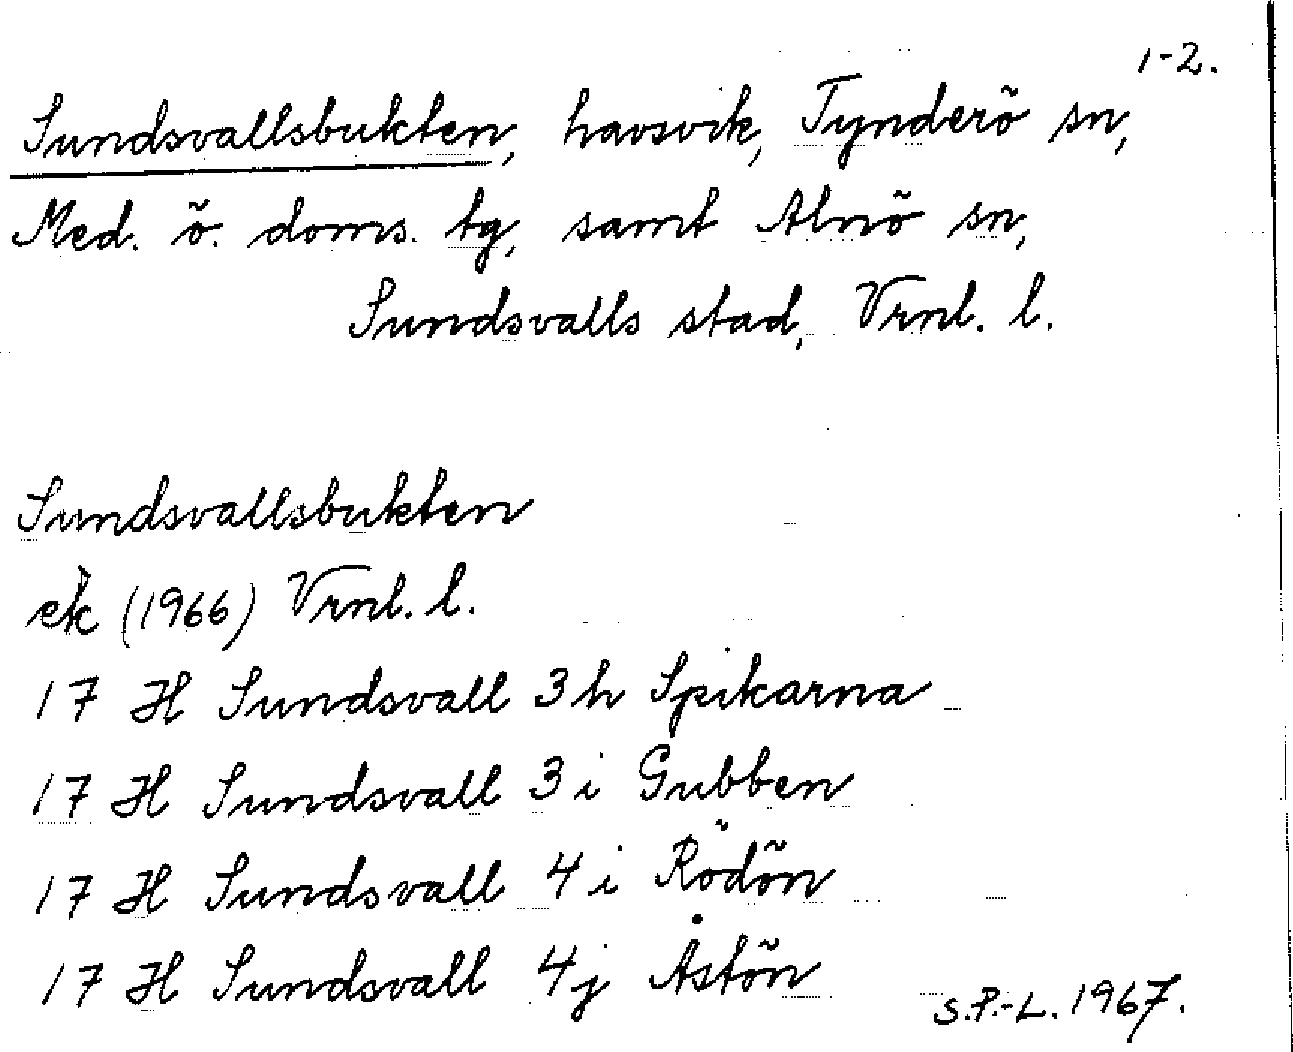 1-2.
Sundsvallsbukten, havsvik, Tynderö sn,
Med. ö. doms. tg, samt Alnö sn,
Sundsvalls stad, Vrnl. l.
Sundsvallsbukten
ek (1966) Vrnl. l.
17 H Sundsvall 3h Spikarna
17 H Sundsvall 3i Gubben
17 H Sundsvall 4i Rödön
17 H Sundsvall 4j Åstön
S.P.-L. 1967.